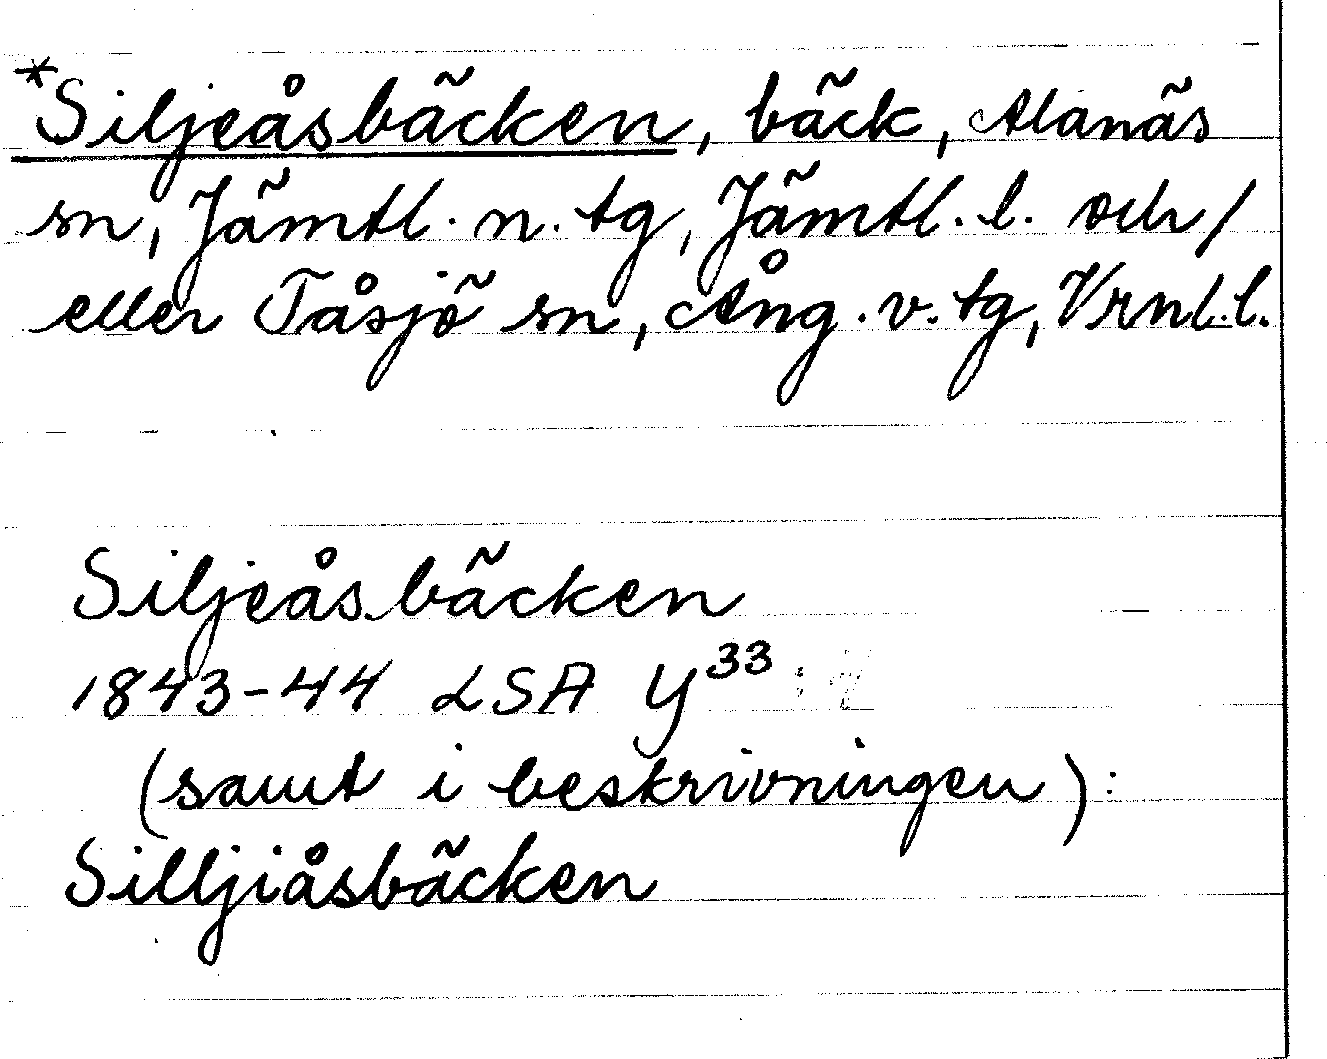 *Siljeåsbäcken, bäck, Alanäs
sn, Jämtl. n. tg, Jämtl. l. och/
eller Tåsjö sn, Ång. v. tg, Vrnl. l.
Siljeåsbäcken
1843-44 LSA Y³³
(samt i beskrivningen):
Silljiåsbäcken